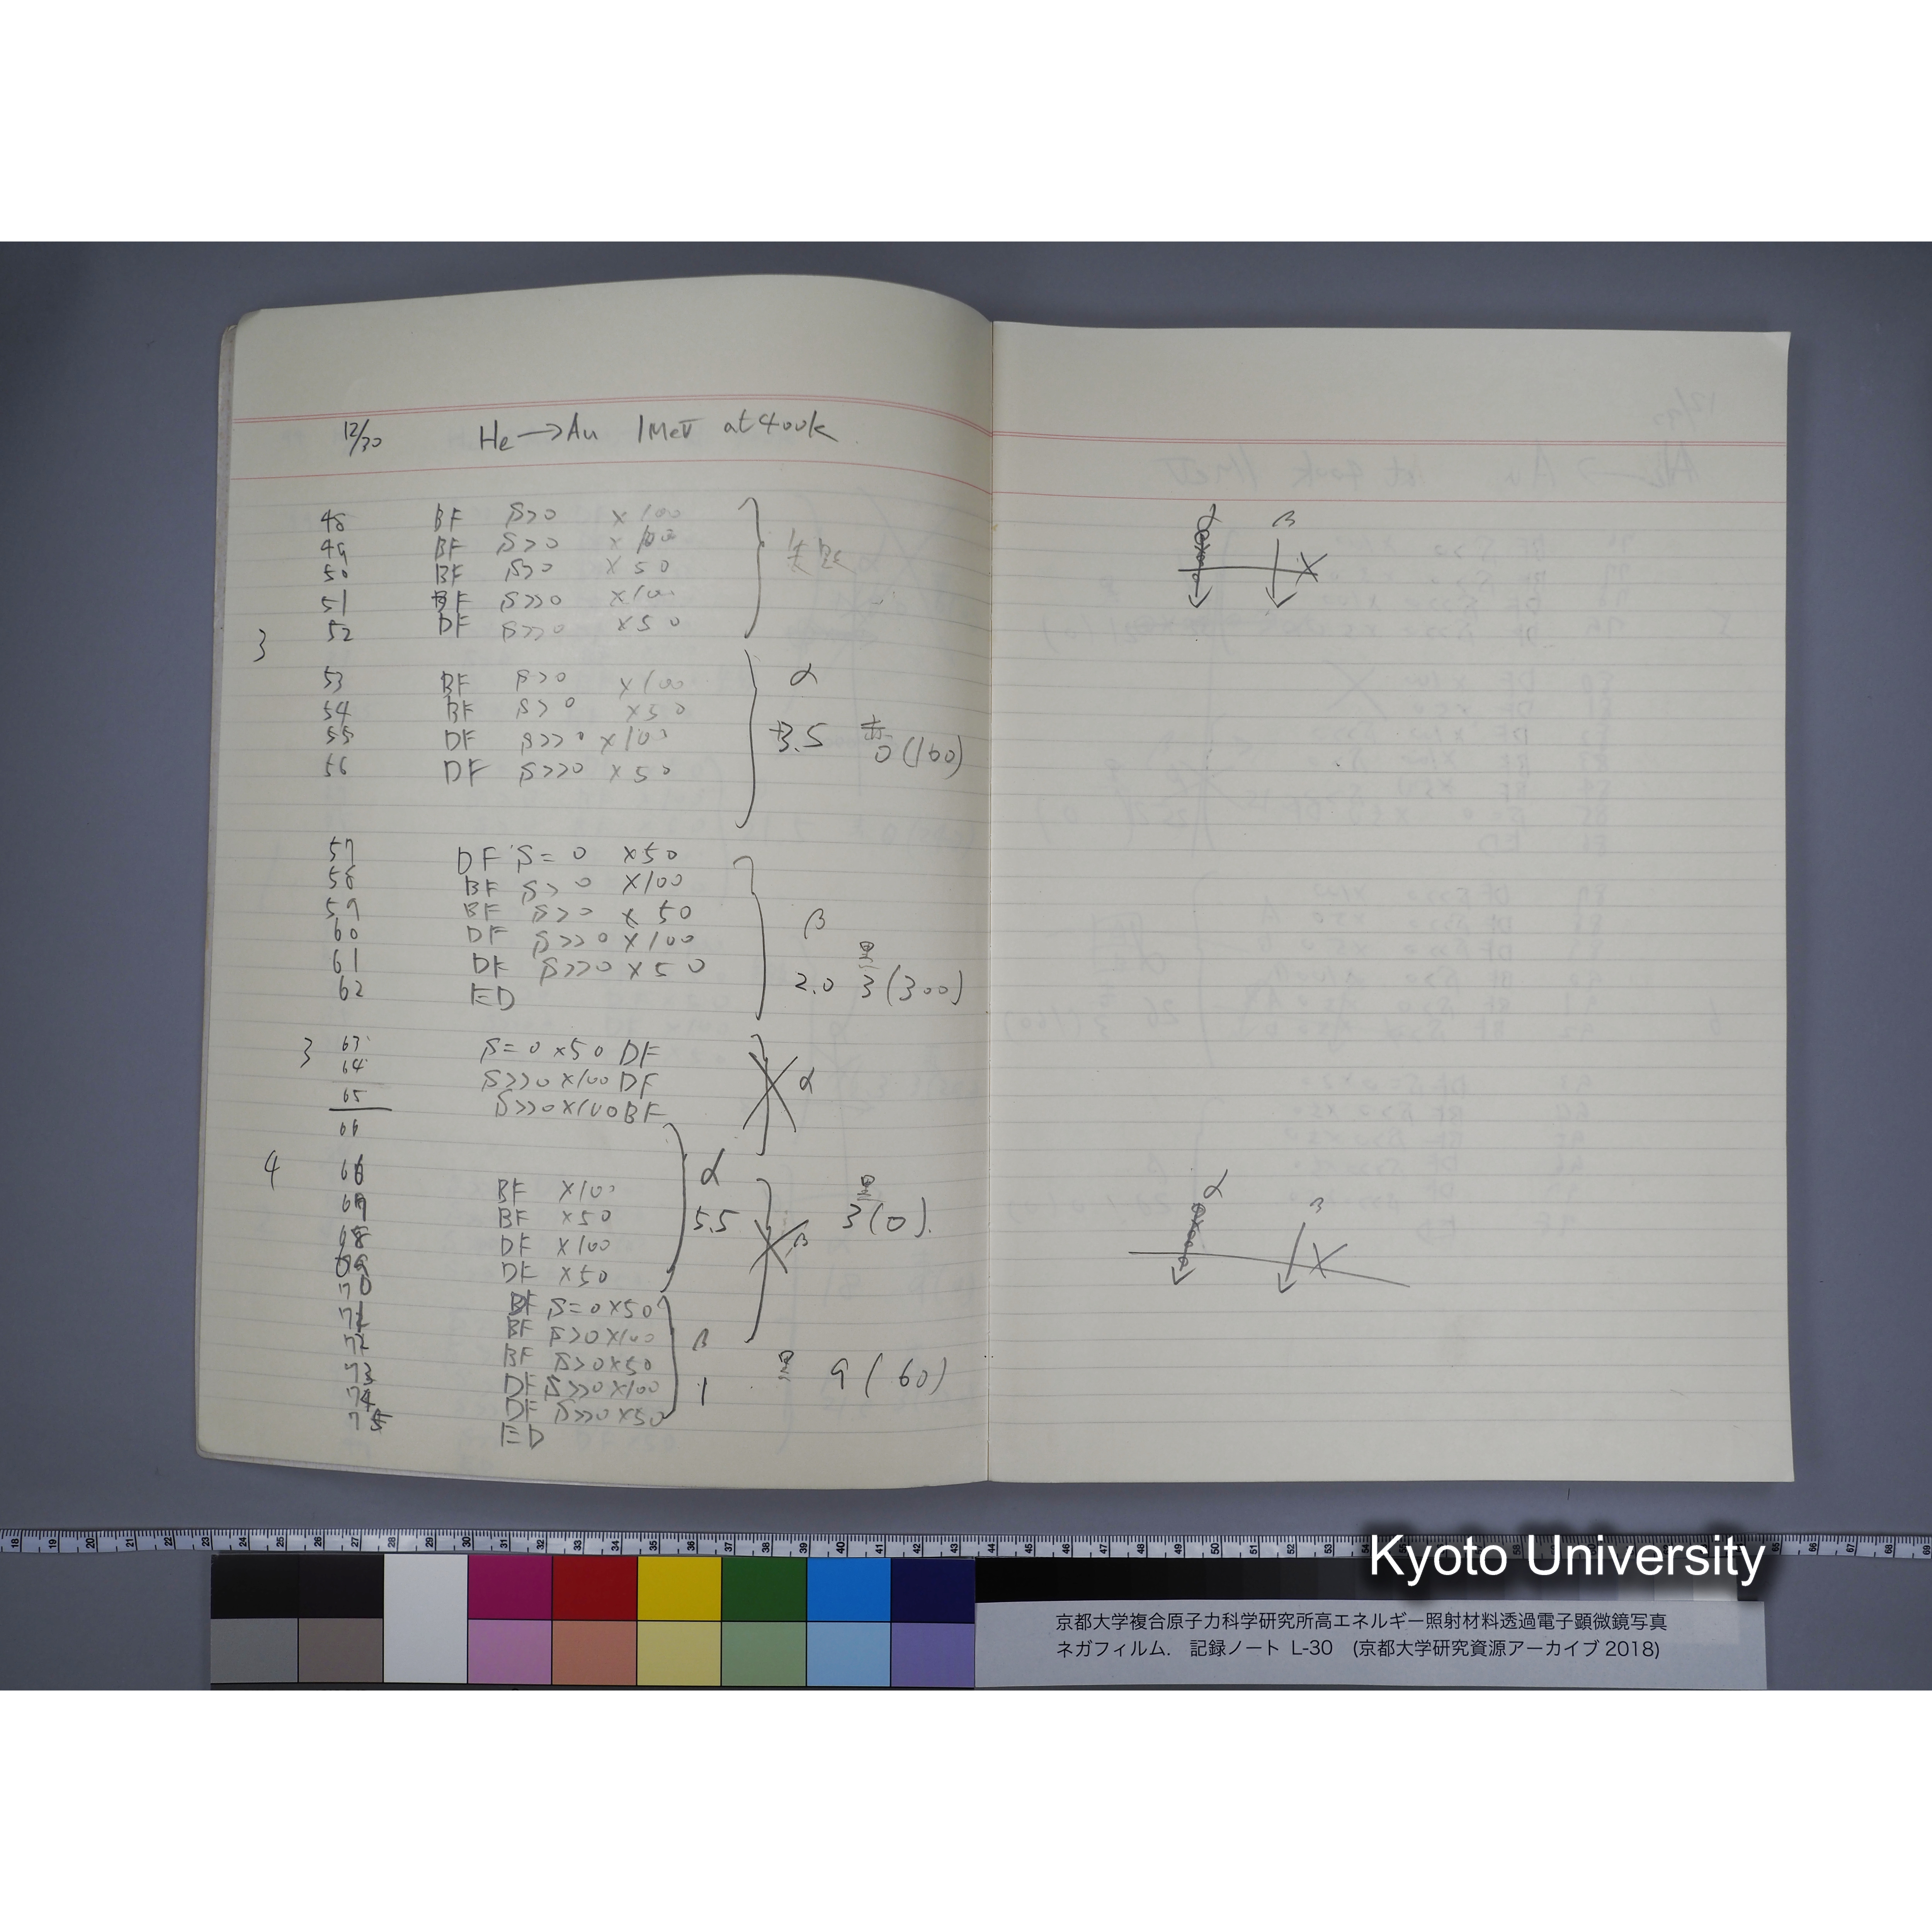 12/30 He→Au 1MeV at 400k
48 BF S>0 ×100
49 BF S>0 ×100
50 BF S>0 ×50
51 BF S>>0 ×100
52 DF S>>0 ×50
失敗
3
53 BF S>0 ×100
54 BF S>0 ×50
55 DF S>>0 ×100
56 DF S>>0 ×50
α
3.5 赤 0(160)
57 DF S=0 ×50
58 BF S>0 ×100
59 BF S>0 ×50
60 DF S>>0 ×100
61 DF S>>0 ×50
62 ED
β
2.0 黒 3(300)
3
63 S=0 ×50 DF
64 S>>0 ×100 DF
65 S>>0 ×100 BF
α
66
4
66
67 BF ×100
68 BF ×50
69 DF ×100
70 DF ×50
α
5.5
β
黒 3(0).
71 BF S=0 ×50
72 BF S>0 ×100
73 BF S>0 ×50
74 DF S>>0 ×100
75 DF S>>0 ×50
ED
β
1 黒 9(60)
α β
α β
Kyoto University
京都大学複合原子力科学研究所高エネルギー照射材料透過電子顕微鏡写真
ネガフィルム. 記録ノート L-30 (京都大学研究資源アーカイブ 2018)